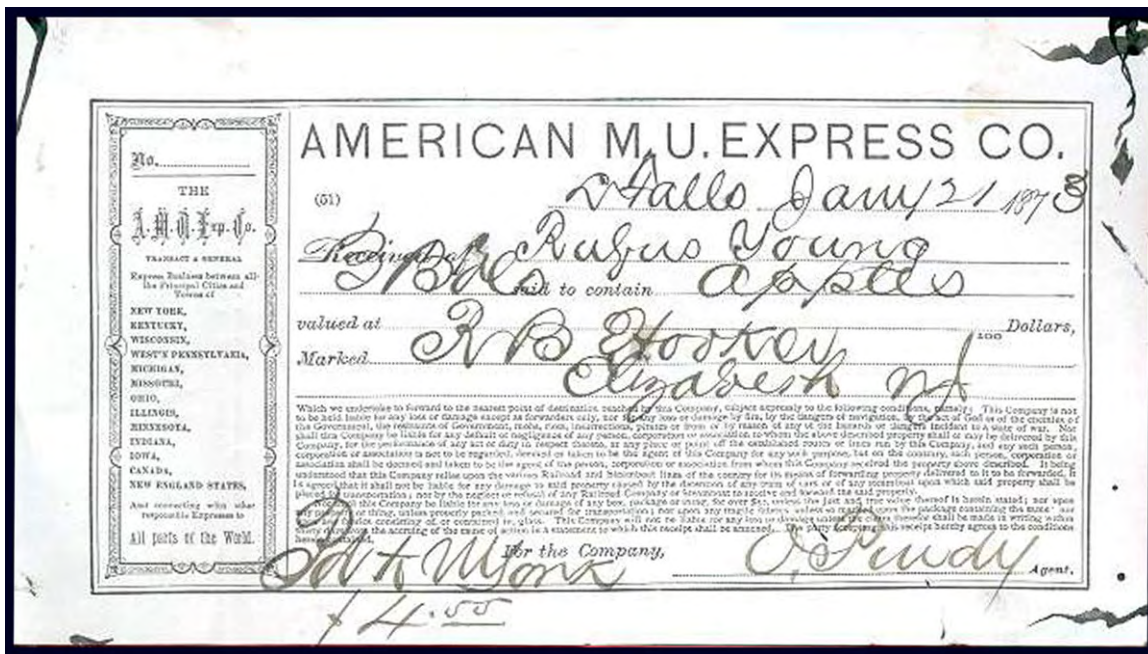 No.
THE
A.M.U. Exp. Co.
TRANSACT A GENERAL
Express Business between all
the Principal Cities and
Towns of
NEW YORK,
KENTUCKY,
WISCONSIN,
WEST'N PENNSYLVANIA,
MICHIGAN,
MISSOURI,
OHIO,
ILLINOIS,
MINNESOTA,
INDIANA,
IOWA,
CANADA,
NEW ENGLAND STATES,
And connecting with other
responsible Expresses to
All parts of the World.
AMERICAN M.U. EXPRESS CO.
(51)
Falls Jany 21 1873
Received of Rufus Young
Bbls said to contain Apples
valued at 100 Dollars,
Marked R B Hooker
Elizabeth NJ
Which we undertake to forward to the nearest point of destination reached by this Company, subject expressly to the following conditions, namely: This Company is not
to be held liable for any loss or damage except as forwarders only, nor for any loss or damage by fire, by the dangers of navigation, by the act of God or of the enemies of
the Government, the restraints of Government, mobs, riots, insurrections, pirates or from or by reason of any of the hazards or dangers incident to a state of war. Nor
shall this Company be liable for any default or negligence of any person, corporation or association to whom the above described property shall or may be delivered by this
Company, for the performance of any act or duty in respect thereto, at any place or point off the established routes or lines run by this Company, and any such person,
corporation or association is not to be regarded, deemed or taken to be the agent of this Company for any such purpose, but on the contrary, such person, corporation or
association shall be deemed and taken to be the agent of the person, corporation or association from whom this Company received the property above described. It being
understood that this Company relies upon the various Railroad and Steamboat lines of the country for its means of forwarding property delivered to it to be forwarded, it
is agreed that it shall not be liable for any damage to said property caused by the detention of any train of cars or of any steamboat upon which said property shall be
placed for transportation; nor by the neglect or refusal of any Railroad Company or Steamboat to receive and forward the said property.
For the Company,
Pd to N York
O. Purdy Agent.
4.55